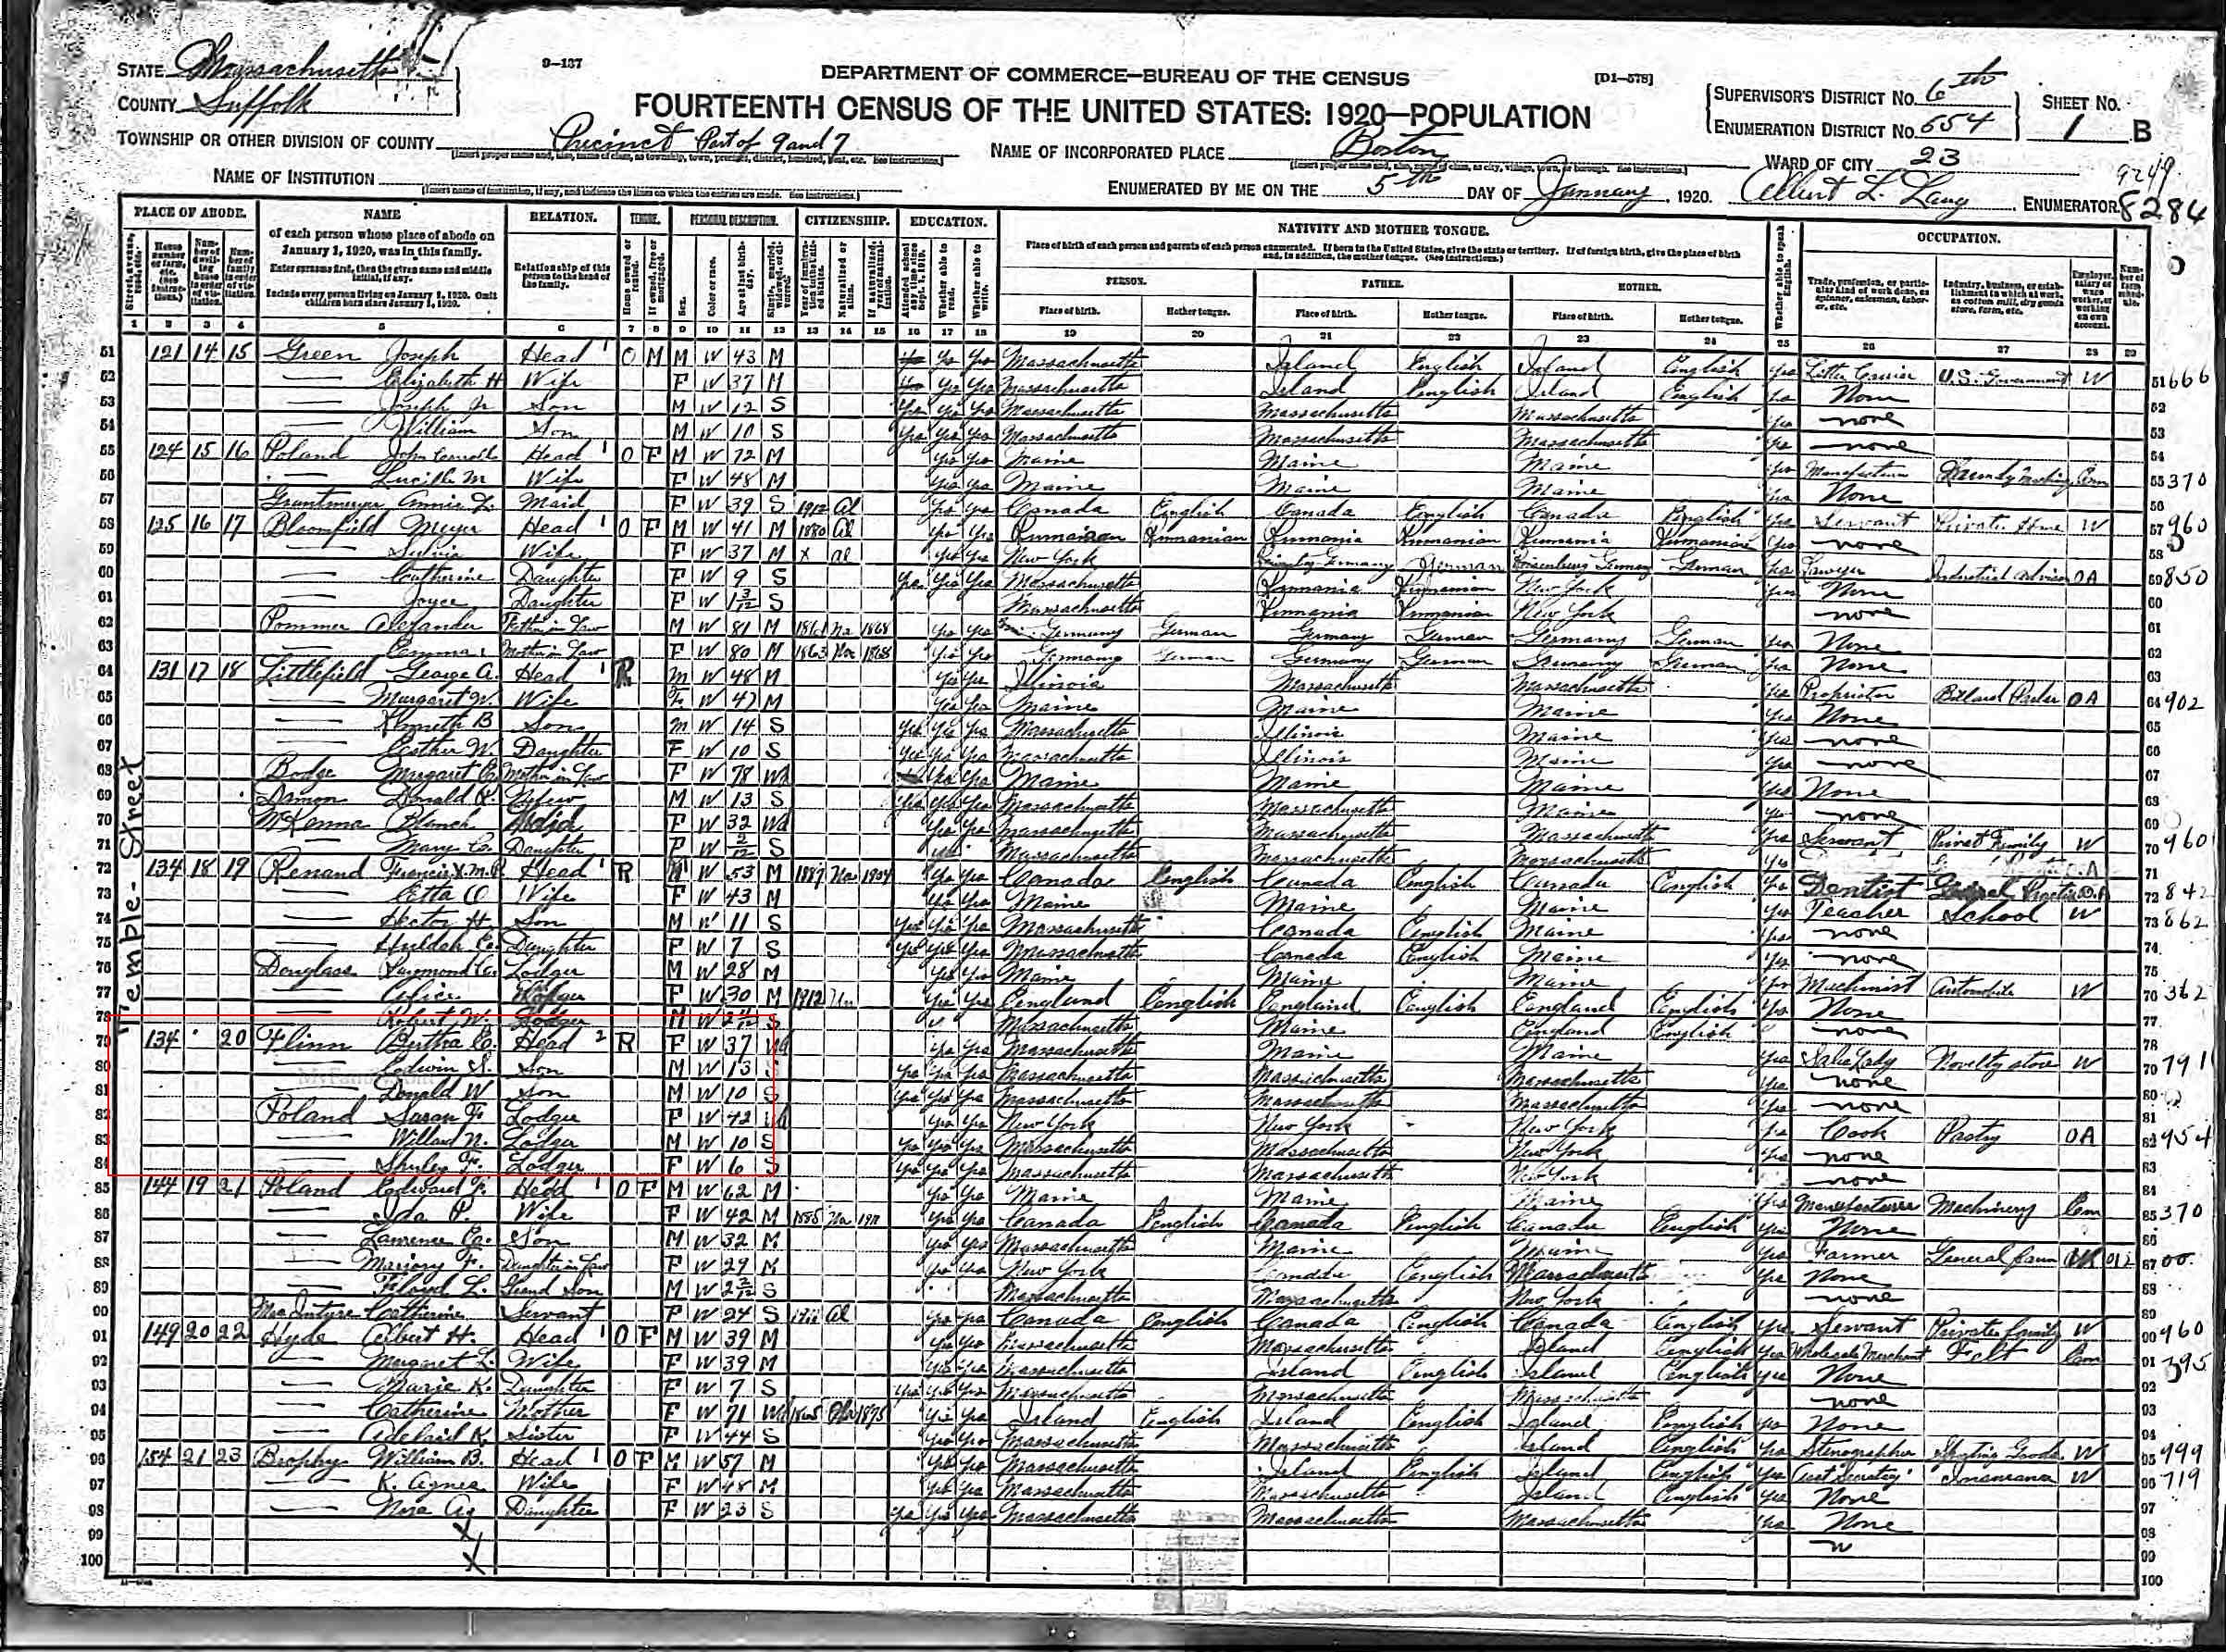 9-137
DEPARTMENT OF COMMERCE—BUREAU OF THE CENSUS
[D1-578]
STATE Massachusetts
COUNTY Suffolk
FOURTEENTH CENSUS OF THE UNITED STATES: 1920—POPULATION
SUPERVISOR'S DISTRICT No. 6th
ENUMERATION DISTRICT No. 654
SHEET No. 1 B
TOWNSHIP OR OTHER DIVISION OF COUNTY Precinct Part of 9 and 7
NAME OF INCORPORATED PLACE Boston
WARD OF CITY 23
NAME OF INSTITUTION
ENUMERATED BY ME ON THE 5th DAY OF January, 1920. Albert L. Lang ENUMERATOR
9249
8284
PLACE OF ABODE. NAME RELATION. TENURE. PERSONAL DESCRIPTION. CITIZENSHIP. EDUCATION. NATIVITY AND MOTHER TONGUE. OCCUPATION.
of each person whose place of abode on January 1, 1920, was in this family.
Enter surname first, then the given name and middle initial, if any.
Include every person living on January 1, 1920. Omit children born since January 1, 1920.
Relationship of this person to the head of the family.
Place of birth of each person and parents of each person enumerated. If born in the United States, give the state or territory. If of foreign birth, give the place of birth and, in addition, the mother tongue. (See instructions.)
PERSON. FATHER. MOTHER.
Place of birth. Mother tongue. Place of birth. Mother tongue. Place of birth. Mother tongue.
1 2 3 4 5 6 7 8 9 10 11 12 13 14 15 16 17 18 19 20 21 22 23 24 25 26 27 28 29
Temple Street
51 121 14 15 Green Joseph Head 1 O M M W 43 M Yes Yes Massachusetts Ireland English Ireland English Yes Letter Carrier U.S. Government W 666
52 Elizabeth H Wife F W 37 M Yes Yes Massachusetts Ireland English Ireland English Yes None
53 Joseph Jr Son M W 12 S Yes Yes Yes Massachusetts Massachusetts Massachusetts Yes none
54 William Son M W 10 S Yes Yes Yes Massachusetts Massachusetts Massachusetts Yes none
55 124 15 16 Poland John Head 1 O F M W 72 M Yes Yes Maine Maine Maine Yes 370
56 Lucille M Wife F W 48 M Yes Yes Maine Maine Maine Yes None
57 Annie L. Maid F W 39 S 1912 Al Yes Yes Canada English Canada English Canada English Yes Servant Private Home W 960
58 125 16 17 Bloomfield Meyer Head 1 O F M W 41 M 1880 Al Yes Yes Rumanian Rumania Rumanian Rumania Rumanian Yes none
59 Sylvia Wife F W 37 M X al Yes Yes New York Germany German Germany German Yes Lawyer OA 850
60 Catherine Daughter F W 9 S Yes Yes Yes Massachusetts Rumania Rumanian New York Yes None
61 Joyce Daughter F W 1 3/12 S Massachusetts Rumania Rumanian New York none
62 Pommer Alexander Father in Law M W 81 M 1861 Na 1868 Yes Yes Germany German Germany German Germany German Yes None
63 Emma Mother in Law F W 80 M 1863 Na 1868 Yes Yes Germany German Germany German Germany German Yes None
64 131 17 18 Littlefield George A. Head 1 R M W 48 M Yes Yes Illinois Massachusetts Massachusetts Yes Proprietor Billiard Parlor OA 902
65 Margaret W. Wife F W 47 M Yes Yes Maine Maine Maine Yes None
66 Kenneth B Son M W 14 S Yes Yes Yes Massachusetts Illinois Maine Yes none
67 Esther W. Daughter F W 10 S Yes Yes Yes Massachusetts Illinois Maine Yes none
68 Bodge Margaret E. Mother in Law F W 78 Wd Yes Yes Maine Maine Maine Yes None
69 Damon Donald Nephew M W 13 S Yes Yes Yes Massachusetts Massachusetts Maine Yes none
70 McKenna Blanch Maid F W 32 Wd Yes Yes Massachusetts Massachusetts Massachusetts Yes Servant Privat Family W 960
71 Mary C. Daughter F W 2/12 S Massachusetts Massachusetts Massachusetts
72 134 18 19 Renaud Francis X.M. Head 1 R M W 53 M 1887 Na 1904 Yes Yes Canada English Canada English Canada English Yes Dentist General Practice O.A 842
73 Etta O Wife F W 43 M Yes Yes Maine Maine Maine Yes Teacher School W 862
74 Hector H. Son M W 11 S Yes Yes Yes Massachusetts Canada English Maine Yes none
75 Huldah E. Daughter F W 7 S Yes Yes Yes Massachusetts Canada English Maine Yes none
76 Douglass Raymond C. Lodger M W 28 M Yes Yes Maine Maine Maine Yes Machinist Automobile W 362
77 Alice Lodger F W 30 M 1912 Un Yes Yes England English England English England English Yes None
78 Robert W. Lodger M W S Massachusetts Maine England English none
79 134 20 Flinn Bertha E. Head 2 R F W 37 Wd Yes Yes Massachusetts Maine Maine Yes Sales Lady Novelty store W 791
80 Edwin S. Son M W 13 S Yes Yes Yes Massachusetts Massachusetts Massachusetts Yes none
81 Donald W Son M W 10 S Yes Yes Yes Massachusetts Massachusetts Massachusetts Yes none
82 Poland Sarah F. Lodger F W 42 Wd Yes Yes New York New York New York Yes Cook Pastry OA 954
83 Willard N. Lodger M W 10 S Yes Yes Yes Massachusetts Massachusetts New York Yes none
84 Shirley F. Lodger F W 6 S Yes Yes Yes Massachusetts Massachusetts New York none
85 144 19 21 Poland Edward F. Head 1 O F M W 62 M Yes Yes Maine Maine Maine Yes Manufacturer Machinery Em 370
86 Ida P. Wife F W 42 M 1885 Na 1911 Yes Yes Canada English Canada English Canada English Yes None
87 Lawrence E. Son M W 32 M Yes Yes Massachusetts Maine Maine Yes Farmer General farm
88 Marjory F. Daughter in Law F W 29 M Yes Yes New York Canada English Massachusetts Yes None
89 Floyd L. Grand Son M W S Massachusetts Massachusetts New York none
90 MacIntyre Catherine Servant F W 24 S Al Yes Yes Canada English Canada English Canada English Yes Servant Private family W 960
91 149 20 22 Hyde Albert H. Head 1 O F M W 39 M Yes Yes Massachusetts Massachusetts Ireland English Yes Wholesale Merchant Felt Em 395
92 Margaret L. Wife F W 39 M Yes Yes Massachusetts Ireland English Ireland English Yes None
93 Marie K. Daughter F W 7 S Yes Yes Yes Massachusetts Massachusetts Massachusetts none
94 Catherine Mother F W 71 Wd 1875 Yes Yes Ireland English Ireland English Ireland English Yes None
95 Adelaid K. Sister F W 44 S Yes Yes Massachusetts Massachusetts Ireland English Yes Stenographer W 999
96 154 21 23 Brophy William B. Head 1 O F M W 57 M Yes Yes Massachusetts Ireland English Ireland English Yes Insurance W 719
97 K. Agnes Wife F W 48 M Yes Yes Massachusetts Massachusetts Ireland English Yes None
98 Daughter F W 23 S Yes Yes Yes Massachusetts Massachusetts Massachusetts Yes None
99
100